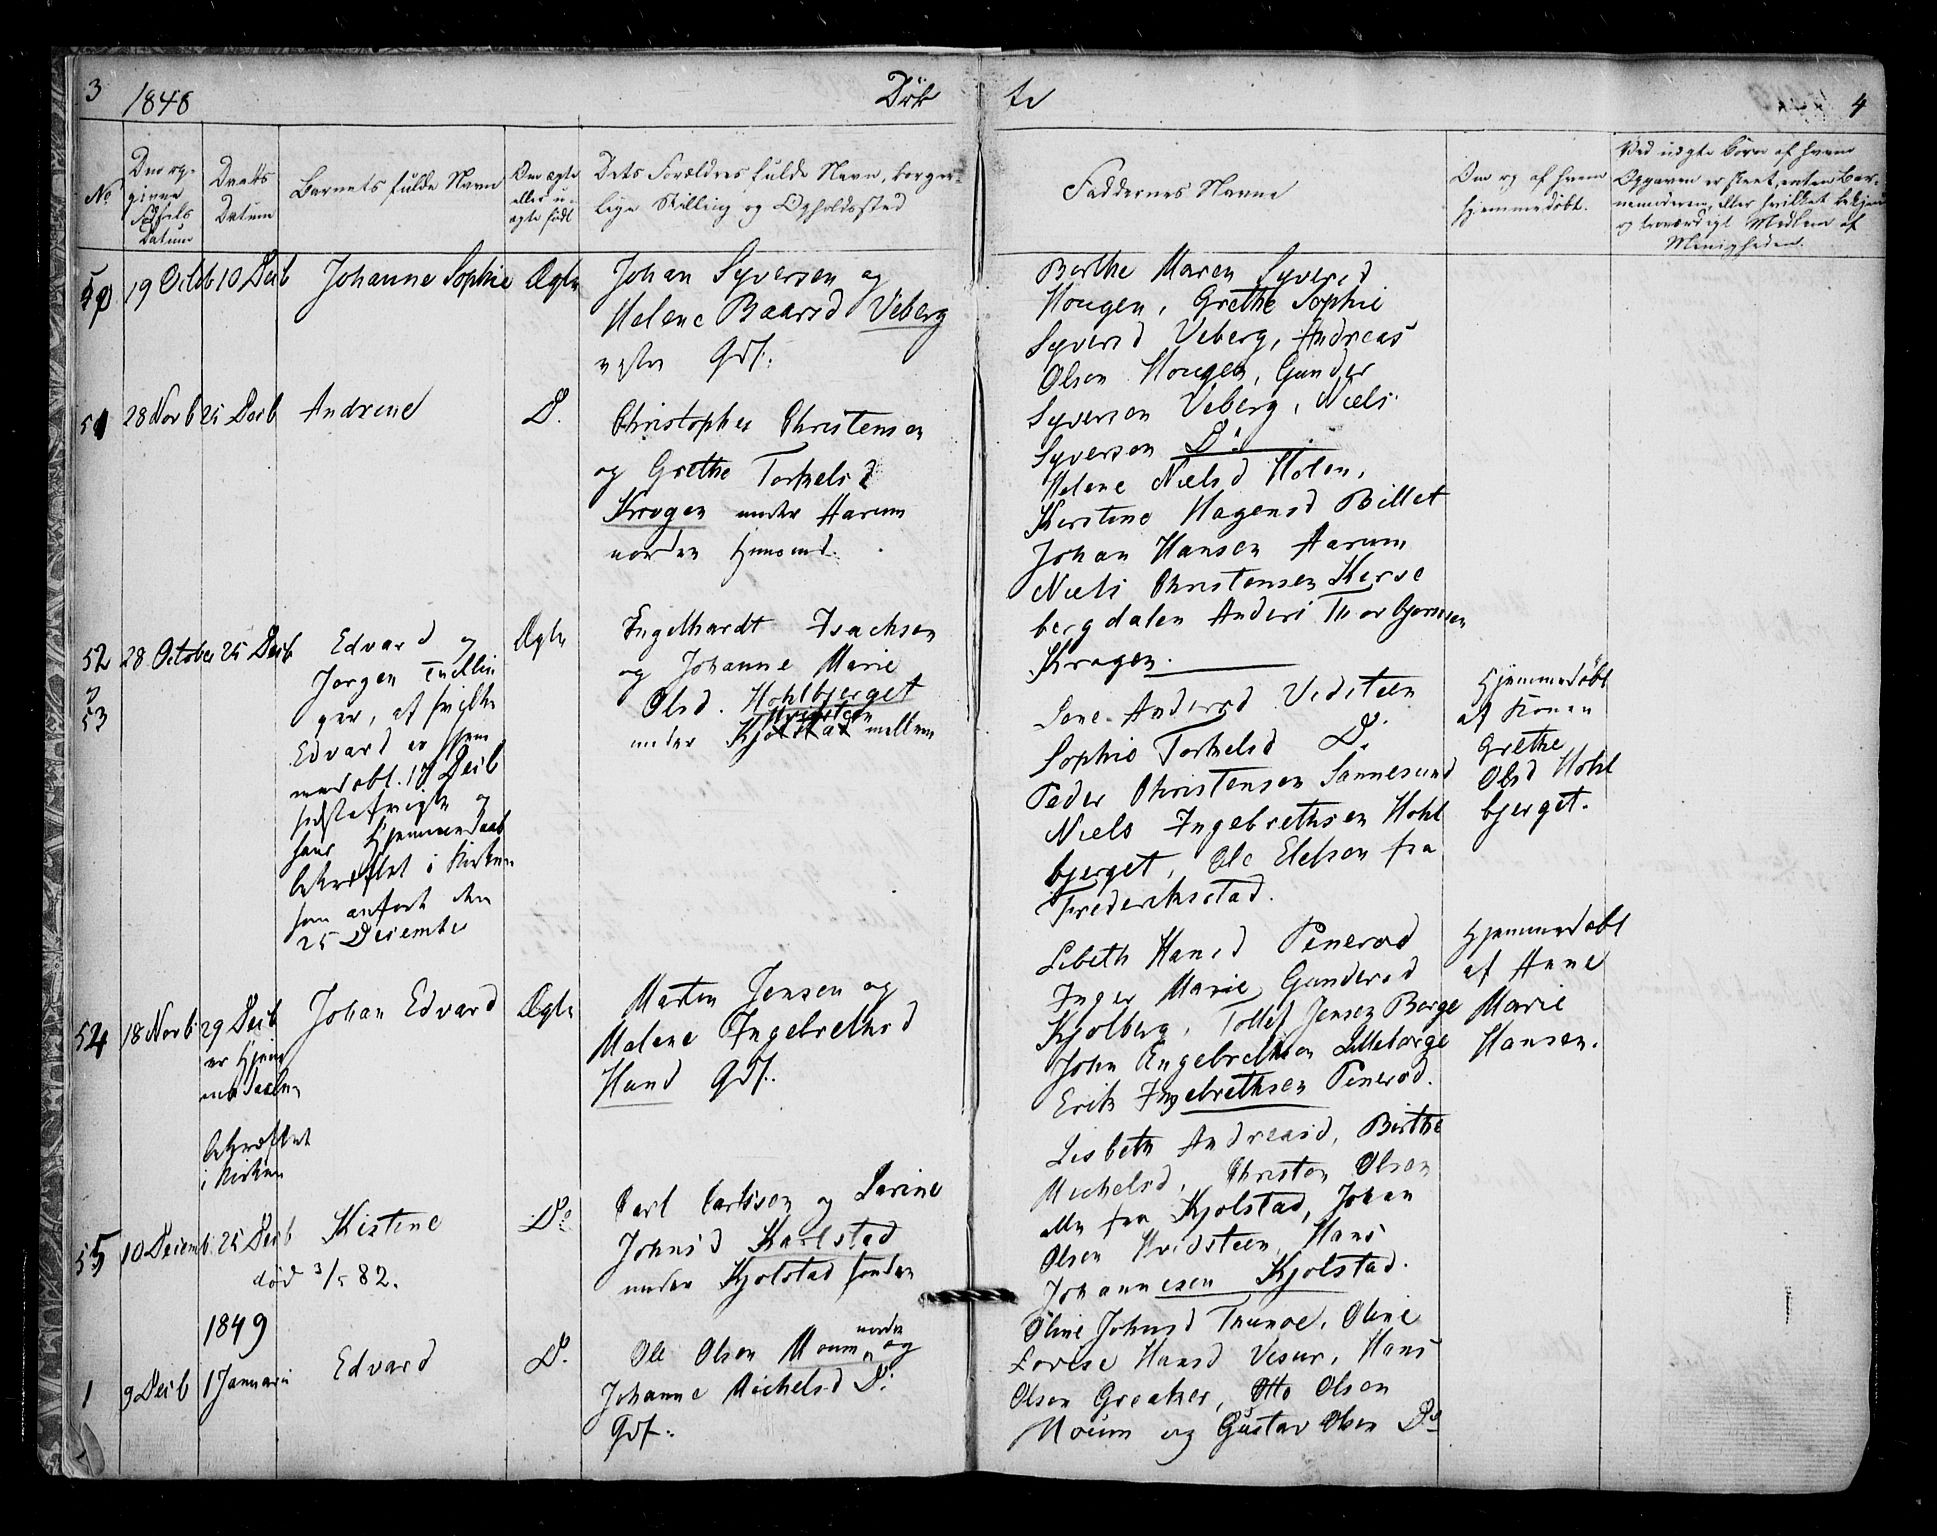 3 1848 Döb
te 4
No
Den op-
givne
Fødsels
Datum
Daabs
Datum
Barnets fulde Navn
Om ægte
eller u-
ægte født
Dets Forældres fulde Navn, borger-
lige Stilling og Opholdssted
Faddernes Navne
Om og af hvem
hjemmedøbt.
Ved uægte Børn af hvem
Opgaven er skeet, enten Bar-
nemoderen, eller hvilket bekjendt
og troværdigt Medlem af
Menigheden.
50 19 Octb 10 Decb Johanne Sophie Ægte
Johan Syversen og
Helene Baarsd Veberg
vestre Gdf.
Berthe Maren Syversd
Hougen, Grethe Sophie
Syversd Veberg, Andreas
Olsen Hougen, Gunder
Syversen Veberg, Niels
Syversen Do
51 28 Novb 25 Decb Andrine D.
Christopher Christensen
og Grethe Torkelsd
Krogen under Aarum
norden Huusmd.
Helene Nielsd Holen,
Kirstine Hagensd Billet
Johan Hansen Aarum
Niels Christensen Kirse
bergdalen Anders Thorbjørnsen
Krogen.
52
og
53
28 October 25 Decb
Edvard og
Jørgen Tvillin
ger, af hvilke
Edvard er hjem
medøbt. 17 Decb
sidstafvigte og
hans Hjemmedaab
bekræftet i Kirken
som anført den
25 December
Ægte
Ingelhardt Isachsen
og Johanne Marie
Olsd. Hohlbjerget
Hvidsteen
under Kjølstad mellem
Lene Andersd Vidsteen
Sophie Torkelsd D.
Peder Christensen Sannesund
Niels Ingebrethsen Hohl
bjerget, Ole Elefsen fra
Frederiksstad.
Hjemmedøbt
af Konen
Grethe
Olsd Hohl
bjerget.
54 18 Novb 29 Decb
er Hjem
medaaben
bekræftet
i Kirken
Johan Edvard Ægte
Morten Jensen og
Malene Ingebrethsd
Hand Gdf.
Lisbeth Hansd Penerød
Inger Marie Gundersd
Kjølberg, Tollef Jensen Borge
John Engebrethsen Lilleborge
Erik Ingebrethsen Penerød.
Hjemmedøbt
af Anne
Marie
Hansen.
55 10 Decemb. 25 Decb Kistine Do
død 3/5 82.
Carl Carlsson og Larine
Johnsd Karlstad
under Kjølstad sønden
Lisbeth Andreasd, Birthe
Michelsd, Christen Olsen
alle fra Kjølstad, Johan
Olsen Hvidsteen, Hans
Johannesen Kjølstad.
1849
1 9 Decb 1 Januari Edvard D.
Ole Olsen Moum norden og
Johanne Michelsd D:
Gdf.
Oline Johnsd Thunøe, Oline
Lovise Hansd Visur, Hans
Olsen Greaker, Otto Olsen
Moum og Gustav Olsen Do